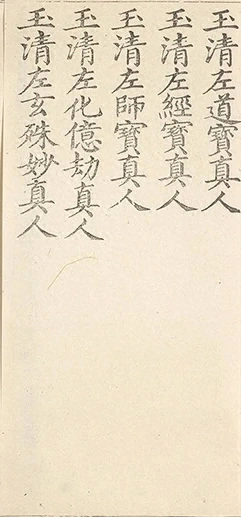 玉清左道寶真人
玉清左經寶真人
玉清左師寶真人
玉清左化億劫真人
玉清左玄殊妙真人